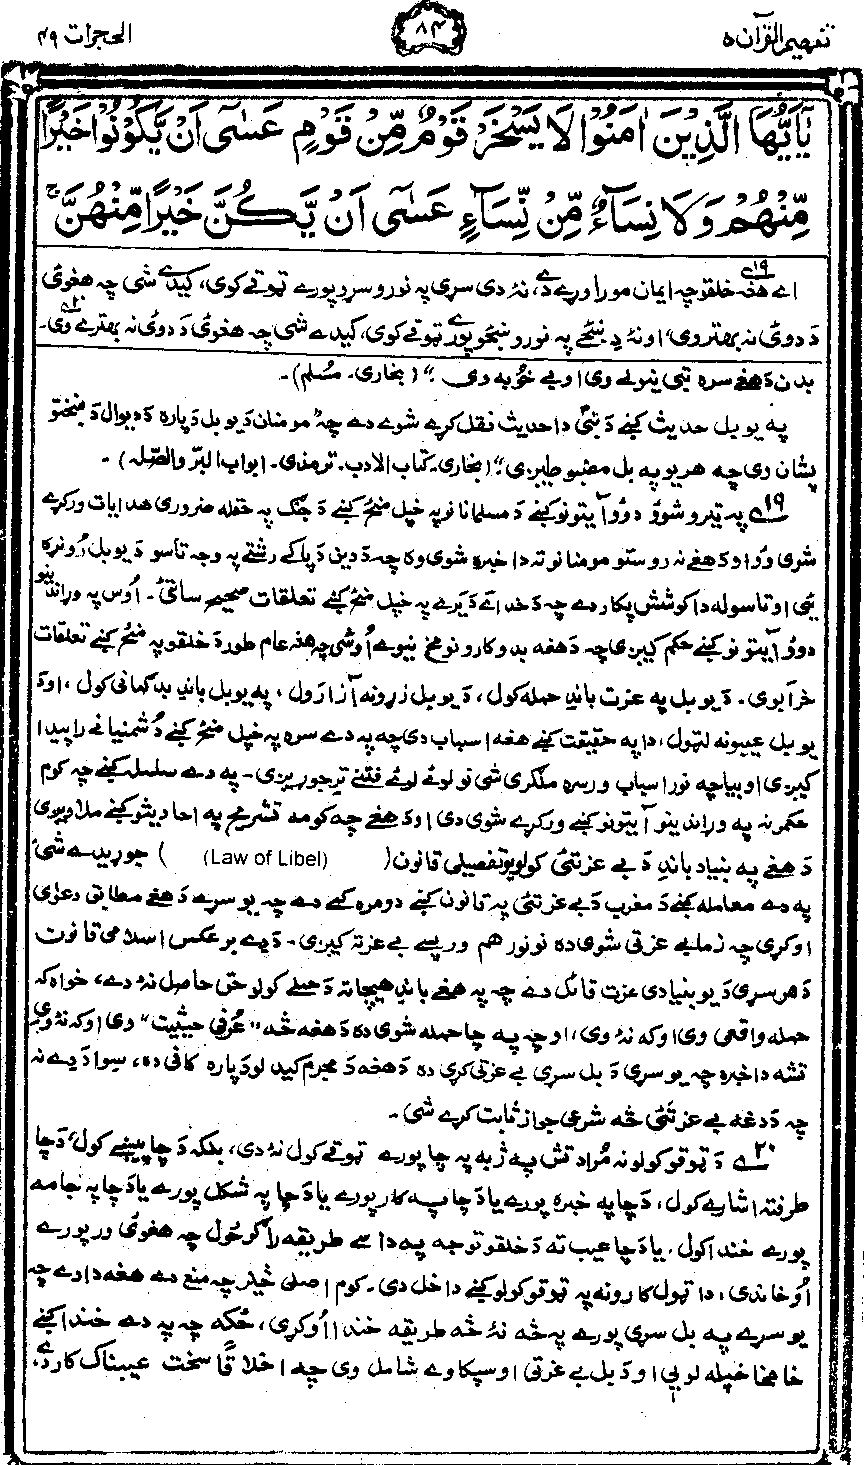 تفهیم القرآن ۵
۸۴
الحجرات ۴۹
يٰٓاَيُّهَا الَّذِيْنَ اٰمَنُوْا لَا يَسْخَرْ قَوْمٌ مِّنْ قَوْمٍ عَسٰٓى اَنْ يَّكُوْنُوْا خَيْرًا
مِّنْهُمْ وَلَا نِسَآءٌ مِّنْ نِّسَآءٍ عَسٰٓى اَنْ يَّكُنَّ خَيْرًا مِّنْهُنَّ ۚ
اے هغه خلقو چه ایمان مو راوړے دے، نۀ دی سړی په نورو سړو پورے ټوقے کوی، کیدے شی چه هغوئ
د دوئ نه بهتر وی، او نۀ دِ ښځے په نورو ښځو پورے ټوقے کوی، کیدے شی چه هغوئ د دوئ نه بهترے وی۔
بدن د هغے سره تبی نیولے وی او بے خوبه وی ؛" (بخاری۔ مُسلم)۔
په یو بل حدیث کښے د نبیؐ دا حدیث نقل کړے شوے دے چه مومنان د یو بل دپاره د دیوال د ښختو
پشان دی چه هر یو په بل مضبوطیږی؛" (بخاری۔ کتاب الادب۔ ترمذی۔ ابواب البرّ والصّله)۔
۱۹ے په تیرو شوؤ دوؤ آیتونو کښے د مسلمانانو په خپل منځ کښے د جنګ په حقله ضروری هدایات ورکړے
شوی وُو او د هغے نه روستو مومنانو ته دا خبره شوی وه چه د دین د پاکے رشتے په وجه تاسو د یو بل رُوڼره
یئی او تاسو له دا کوشش پکار دے چه د خداے د یرے په خپل منځ کښے تعلقات صحیح ساتئ۔ اُوس په وراندینو
دوؤ آیتونو کښے حکم کیږی چه د هغه بدو کارونو مخ نیوے اُوشی چه هغه عام طور د خلقو په منځ کښے تعلقات
خرابوی۔ د یو بل په عزت باندِ حمله کول، د یو بل زړونه آزارول، په یو بل باندِ بدګمانی کول، او د
یو بل عیبونه لټول، دا په حقیقت کښے هغه اسباب دی چه په دے سره په خپل منځ کښے دُشمنیانے راپیدا
کیږی او بیا چه نور اسباب ورسره ملګری شی نو لوئے لوئے فتنے ترِ جوړیږی۔ په دے سلسله کښے چه کوم
حکمونه په وراندینو آیتونو کښے ورکړے شوی دی او د هغے چه کومه تشریح په احادیثو کښے ملاویږی
د هغے په بنیاد باندِ د بے عزتئ کولو یو تفصیلی قانون (Law of Libel) جوړیدے شی
په دے معامله کښے د مغرب د بے عزتئ په قانون کښے دومره کمے دے چه یو سړے د هغے مطابق دعوٰی
اوکړی چه زما بے عزتی شوی ده نو نور هم ورپسے بے عزته کیږی۔ د دے برعکس اسلامی قانون
د هر سړی د یو بنیادی عزت قائل دے چه په هغے باندِ هیچاته د حملے کولو حق حاصل نۀ دے، خواه که
حمله واقعی وی او که نۀ وی، او چه په چا حمله شوی ده د هغه څه "عُرفی حیثیت" وی او که نۀ وی
تشه دا خبره چه یو سړی د بل سړی بے عزتی کړی ده د هغه د مجرم کیدلو دپاره کافی ده، سوا د دے نه
چه د دغه بے عزتئ څه شرعی جواز ثابت کړے شی۔
۲۰ے د ټوقو کولو نه مُراد تش په ژبه په چا پورے ټوقے کول نۀ دی، بلکه د چا پیښے کول، د چا
طرفته اشارے کول، د چا په خبره پورے یا د چا په کار پورے یا د چا په شکل پورے یا د چا په جامه
پورے خندا کول، یا د چا عیب ته د خلقو توجه په داسے طریقه راګرځول چه هغوئ ورپورے
اُوخاندی، دا ټول کارونه په ټوقو کولو کښے داخل دی۔ کوم اصلی څیز چه منع دے هغه دا دے چه
یو سړے په بل سړی پورے په څه نۀ څه طریقه خندا اُوکړی، ځکه چه په دے خندا کښے
خامخا خپله لویی او د بل بے عزتی او سپکاوے شامل وی چه اخلاقاً سخت عیبناک کار دے،